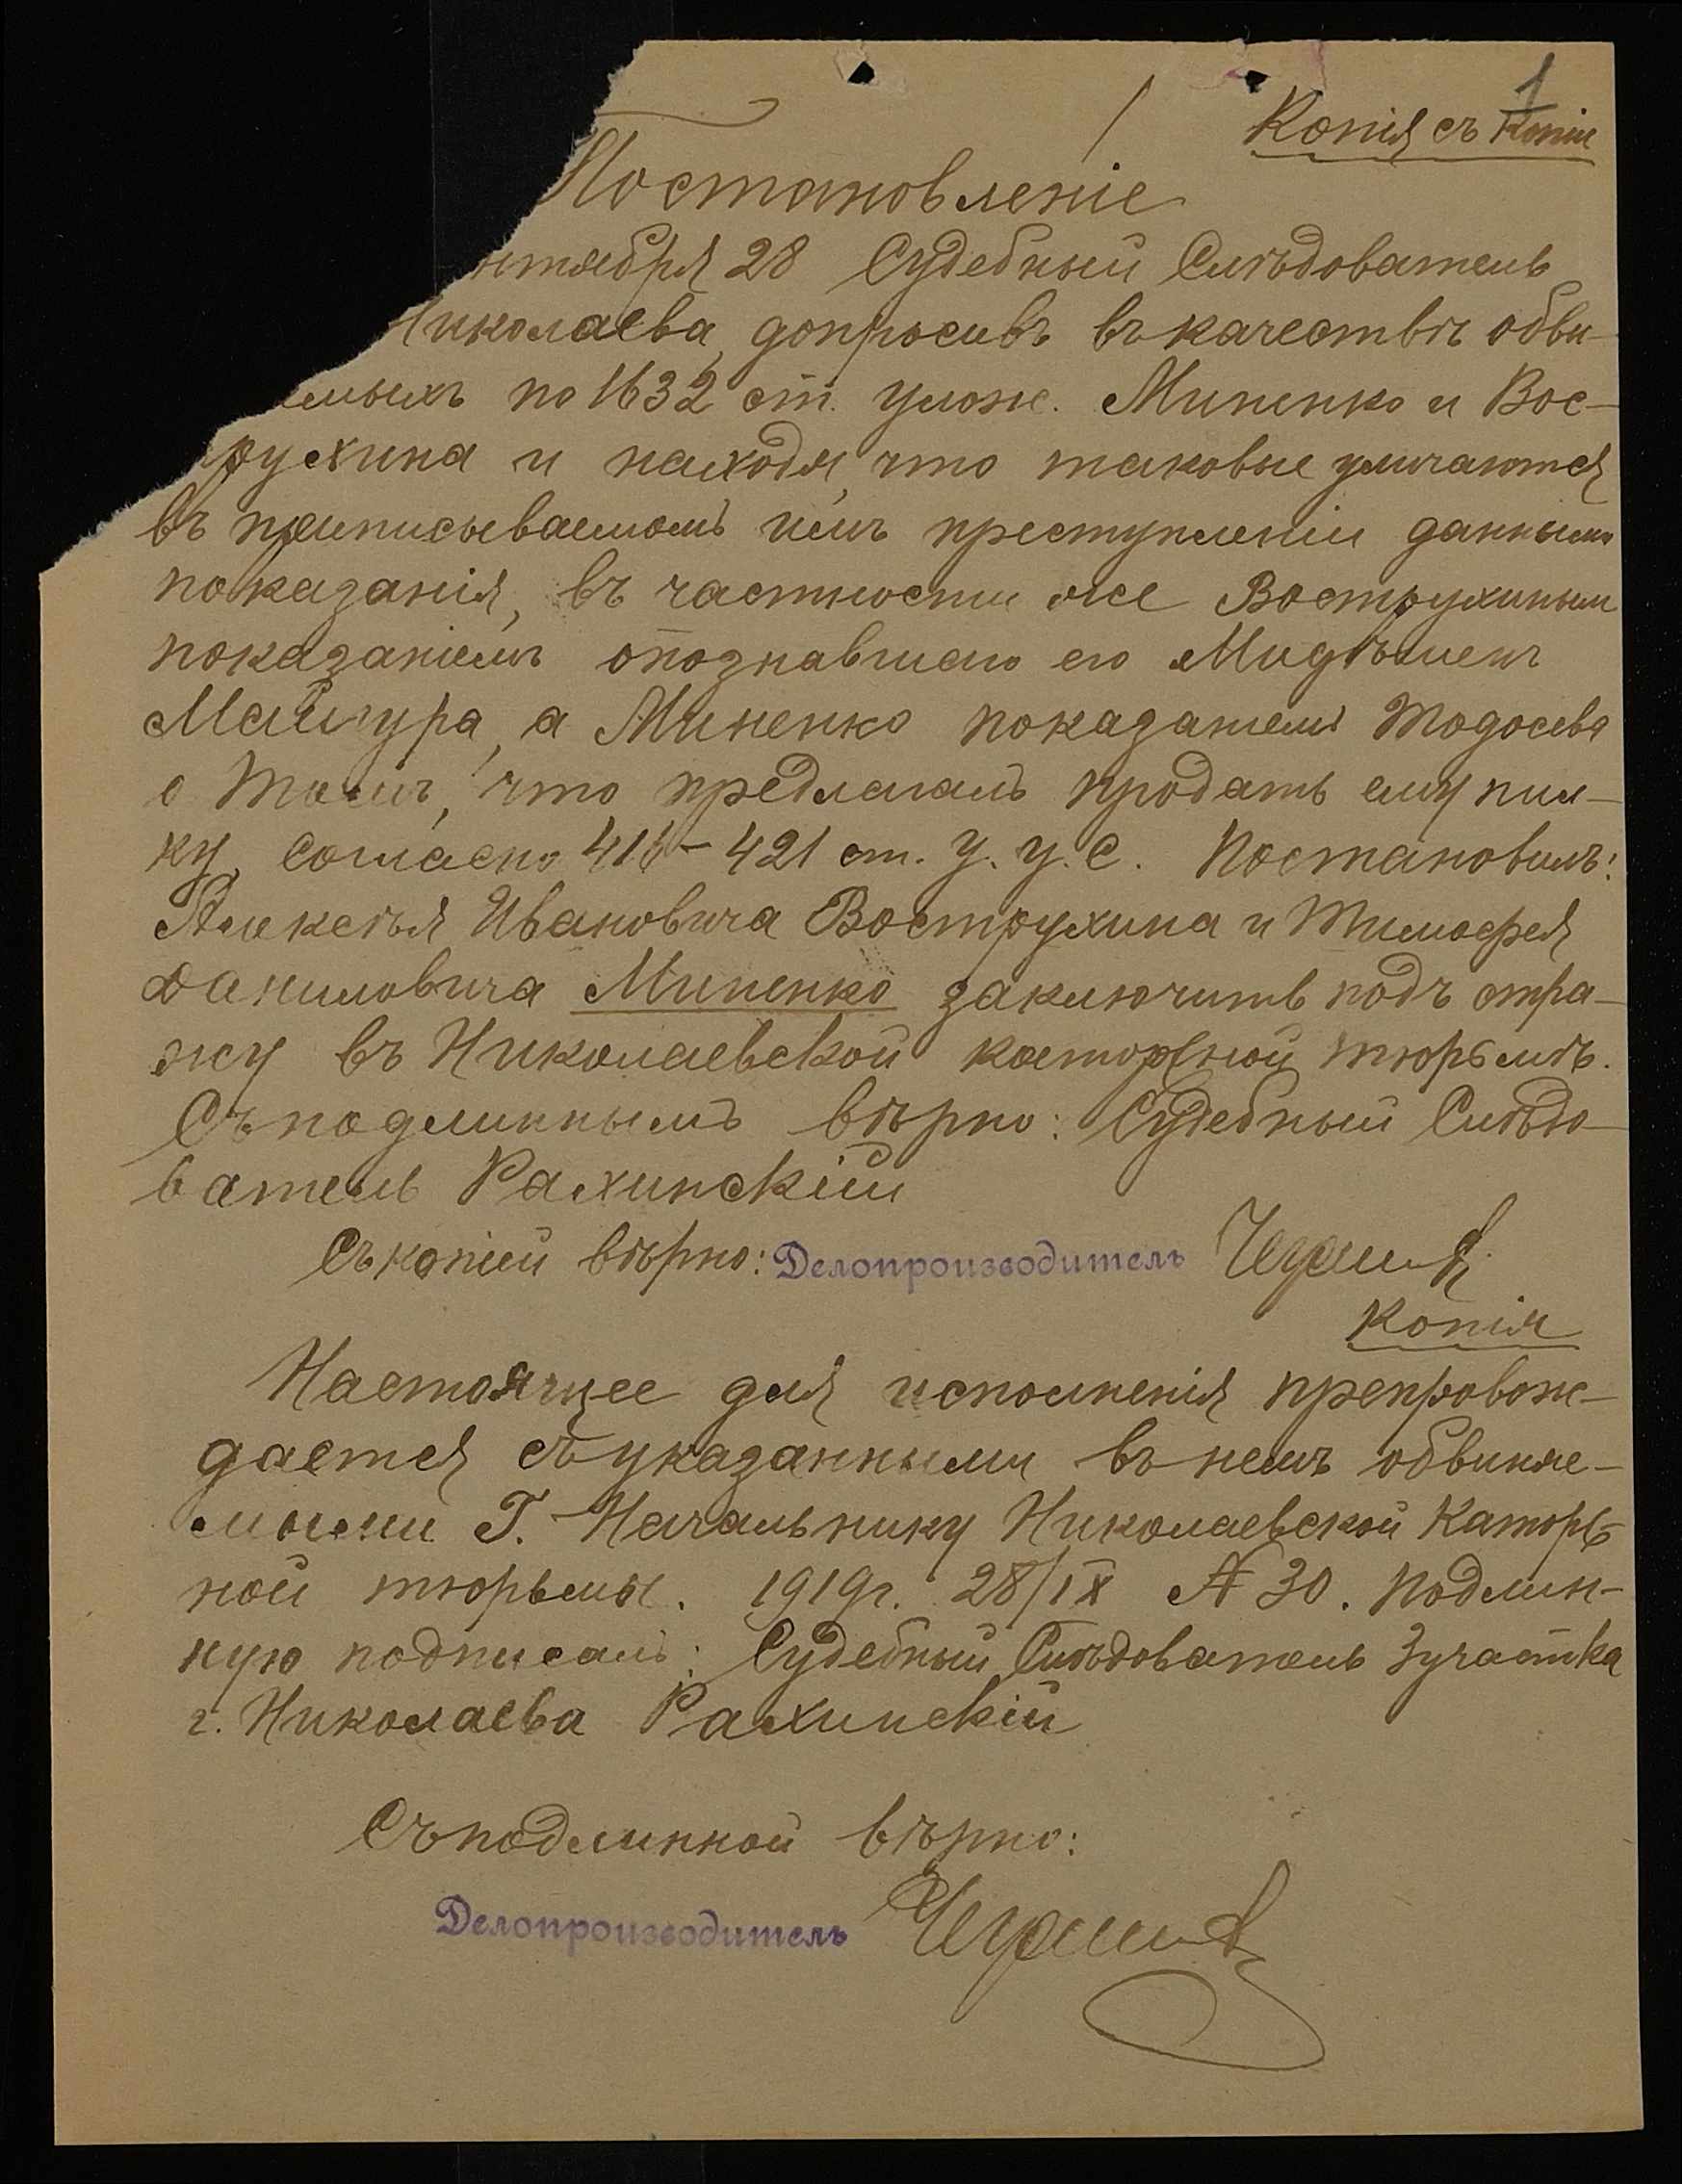 1
Копія съ копіи
Постановленіе
нтября 28 Судебный Слѣдователь
Николаева, допросивъ въ качествѣ обви-
емыхъ по 1632 ст. улож. Миненко и Вос-
трухина и находя, что таковые уличаются
въ приписываемомъ имъ преступленіи данными
показанія, въ частности же Вострухинъ
показаніемъ опознавшаго его
а Миненко показаніемъ Тодосева
о томъ, что предлагалъ продать ему пил-
ку, согласно 416-421 ст. У. У. С. Постановилъ:
Алексѣя Ивановича Вострухина и Тимофея
Даниловича Миненко заключить подъ стра-
жу въ Николаевской каторжной тюрьмѣ.
Съ подлиннымъ вѣрно: Судебный Слѣдо-
ватель Рахинскій
Съ копіей вѣрно: Делопроизводитель
Копія
Настоящее для исполненія препровож-
дается съ указанными въ немъ обвиняе-
мыми Г. Начальнику Николаевской Каторж-
ной тюрьмы. 1919г. 28/IX № 30. Подлин-
ную подписалъ: Судебный Слѣдователь 3 участка
г. Николаева Рахинскій
Съ подлинной вѣрно:
Делопроизводитель